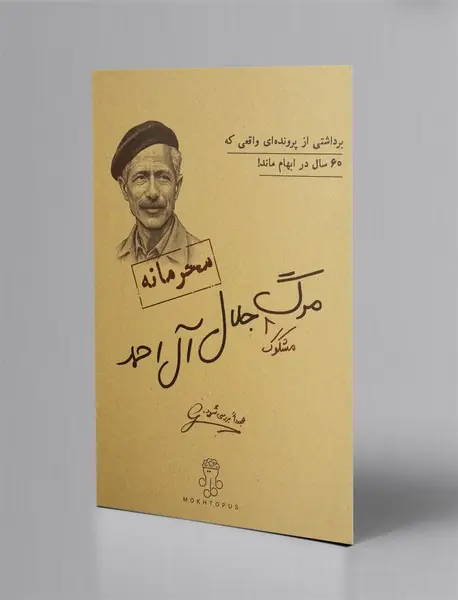 برداشتی از پرونده‌ای واقعی که
۶۰ سال در ابهام ماند!
محرمانه
مرگ جلال آل احمد
مشکوک
مجدداً بررسی شود.
MOKHTOPUS